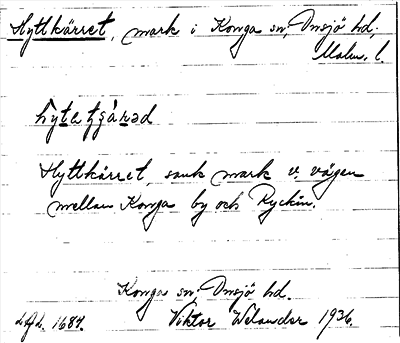 Hyttkärret, mark i Konga sn, Onsjö hd,
Malm. l.
Hyttkärret, sank mark v. vägen
mellan Konga by och Ryckin.
Konga sn, Onsjö hd.
1684. Viktor Welander 1936.